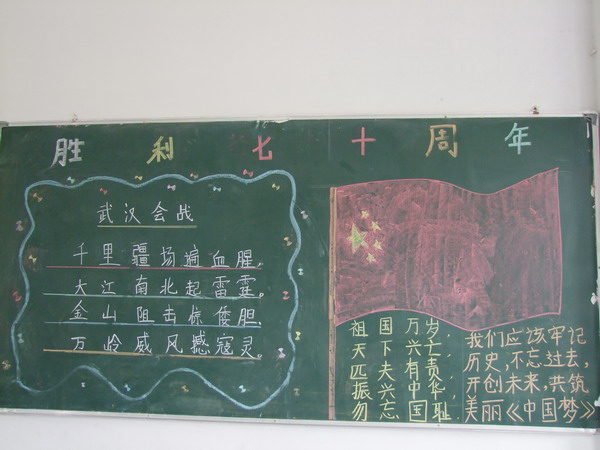 胜利七十周年
武汉会战
千里疆场遍血腥,
大江南北起雷霆。
金山阻击惊倭胆,
万岭威风撼寇灵。
祖国万岁
天下兴亡,
匹夫有责.
振兴中华,
勿忘国耻.
我们应该牢记
历史,不忘过去,
开创未来,共筑
美丽《中国梦》